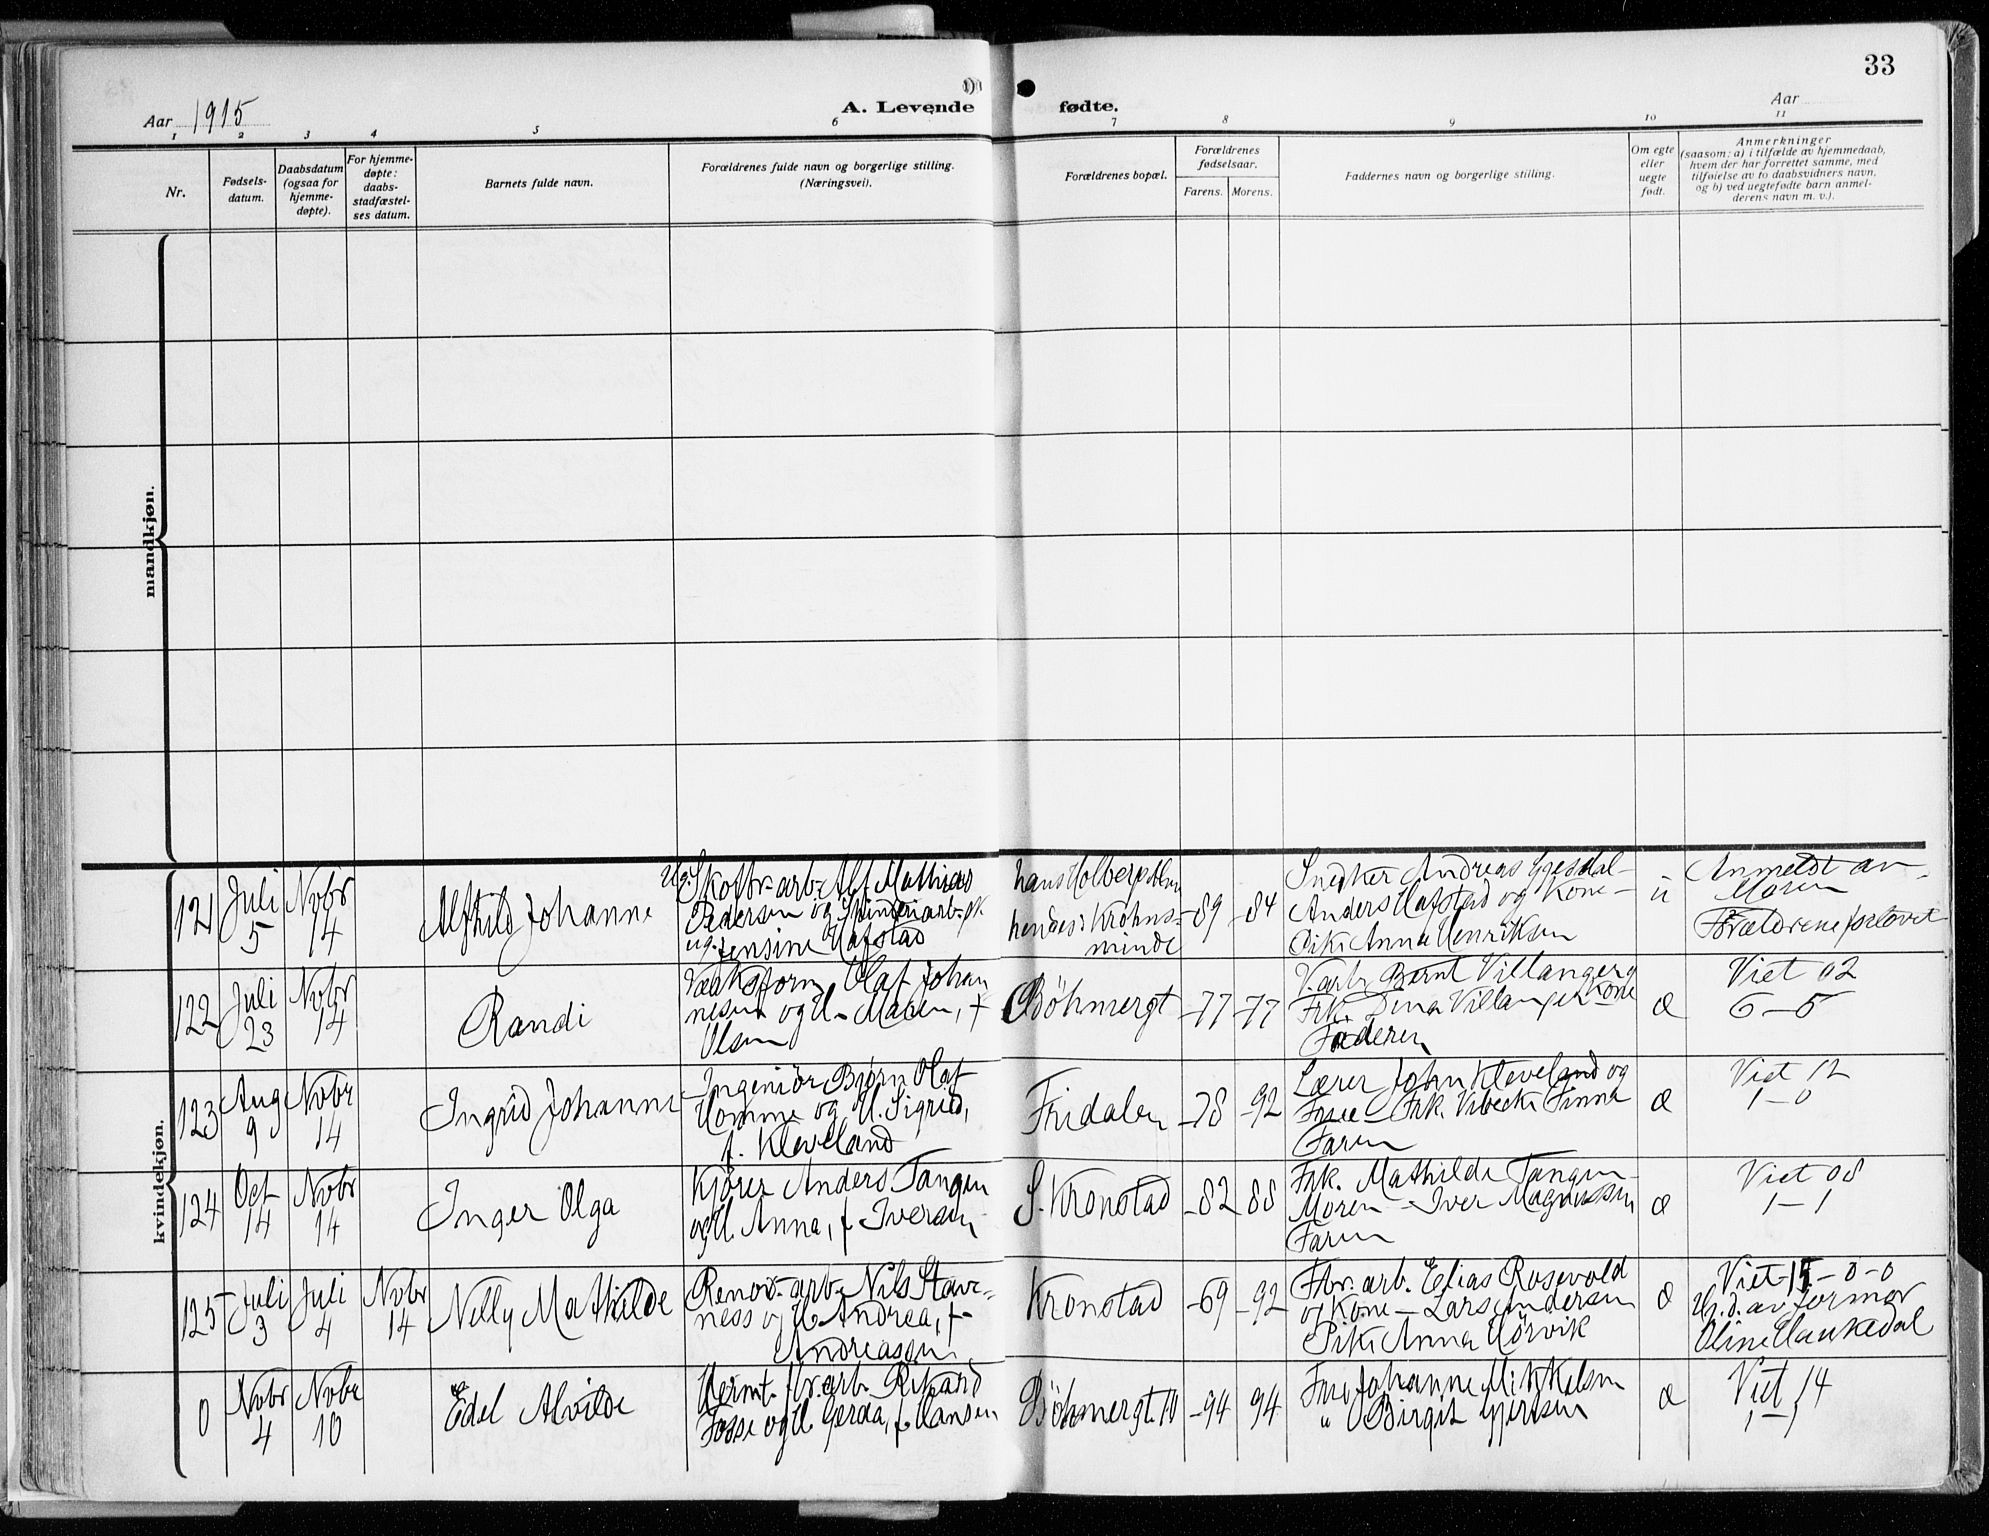 33
Aar 1915
A. Levende fødte.
Aar
1 2 3 4 5 6 7 8 9 10 11
Nr.
Fødsels-
datum.
Daabsdatum
(ogsaa for
hjemme-
døpte).
For hjemme-
døpte:
daabs-
stadfæstel-
ses datum.
Barnets fulde navn.
Forældrenes fulde navn og borgerlige stilling.
(Næringsvei).
Forældrenes bopæl.
Forældrenes
fødselsaar.
Farens. Morens.
Faddernes navn og borgerlige stilling.
Om egte
eller
uegte
født.
Anmerkninger
(saasom: a) i tilfælde av hjemmedaab,
hvem der har forrettet samme, med
tilføielse av to daabsvidners navn,
og b) ved uegtefødte barn anmel-
derens navn m. v.).
mandkjøn.
kvindekjøn.
121
Juli
5
Novbr
14
Alfhild Johanne
Ug. Skotbr-arb. Alf Mathias
Pedersen og
ug. Jensine Hafstad
hans:
hendes: Krohns-
minde
-89
-84
Snedker Andreas Gjesdal-
Anders Hafstad og Kone-
Pike Anna Henriksen
u
Anmeldt av
Moren
Forældrene forlovet
122
Juli
23
Novbr
14
Randi
Olaf Johan
nesen og H. Maren, f
Olsen
Böhmergt
-77
-77
V.arb. Bernt Villanger og Kone
Frk. Dina Villanger
Faderen
æ
Viet 02
6-5
123
Aug
9
Novbr
14
Ingrid Johanne
Ingeniör Bjørn Olaf
Homme og H. Sigrid,
f. Kleveland
Fridalen
-78
-92
Lærer John Kleveland og
Frue - Frk. Vibecke Finne
Faren
æ
Viet 12
1-0
124
Oct
14
Novbr
14
Inger Olga
Kjører Anders Tangen
og H. Anna, f Iversen
S. Kronstad
-82
88
Frk. Mathilde Tangen-
Moren - Iver Magnussen
Faren
æ
Viet 08
1-1
125
Juli
3
Juli
4
Novbr
14
Nelly Mathilde
Renov-arb. Nils Stave-
ness og H Andrea, f-
Andreassen
Kronstad
-69
-92
Fbr.arb. Elias Rosevold
og Kone - Lars Andersen
Pike Anna Hörvik
æ
Viet-15-0-0
Hj.d. av jormor
Oline Haukedal
0
Novbr
4
Novbr
10
Edel Alvilde
Hermt. fbr.arb. Rikard
Fosse og H Gerda, f Hansen
Böhmergt 10
-94
94
Frue Johanne Mikkelsen
" Birgit Gjertsen
æ
Viet 14
1-1